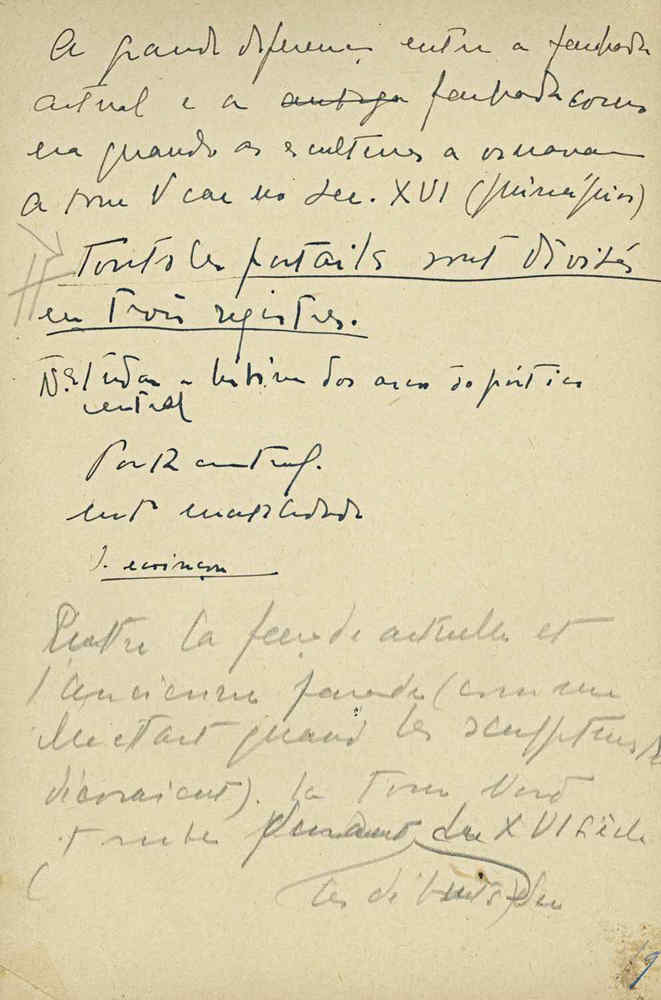 A grande diferença entre a fachada
actual e a antiga fachada como
era quando as esculturas a ornavam
A torre N cae no sec. XVI (principios)
Touts les portails sont divisés
en trois registres.
Nº dos arcos do pórtico
central
Porta central.
ent
J. ecoinçon
Entre la façade actuelle et
l'ancienne façade (comme
elle etait quand les sculptures
décoraient). la Tour Nord
tombe pendant du XVI siècle
(
les débuts du
9